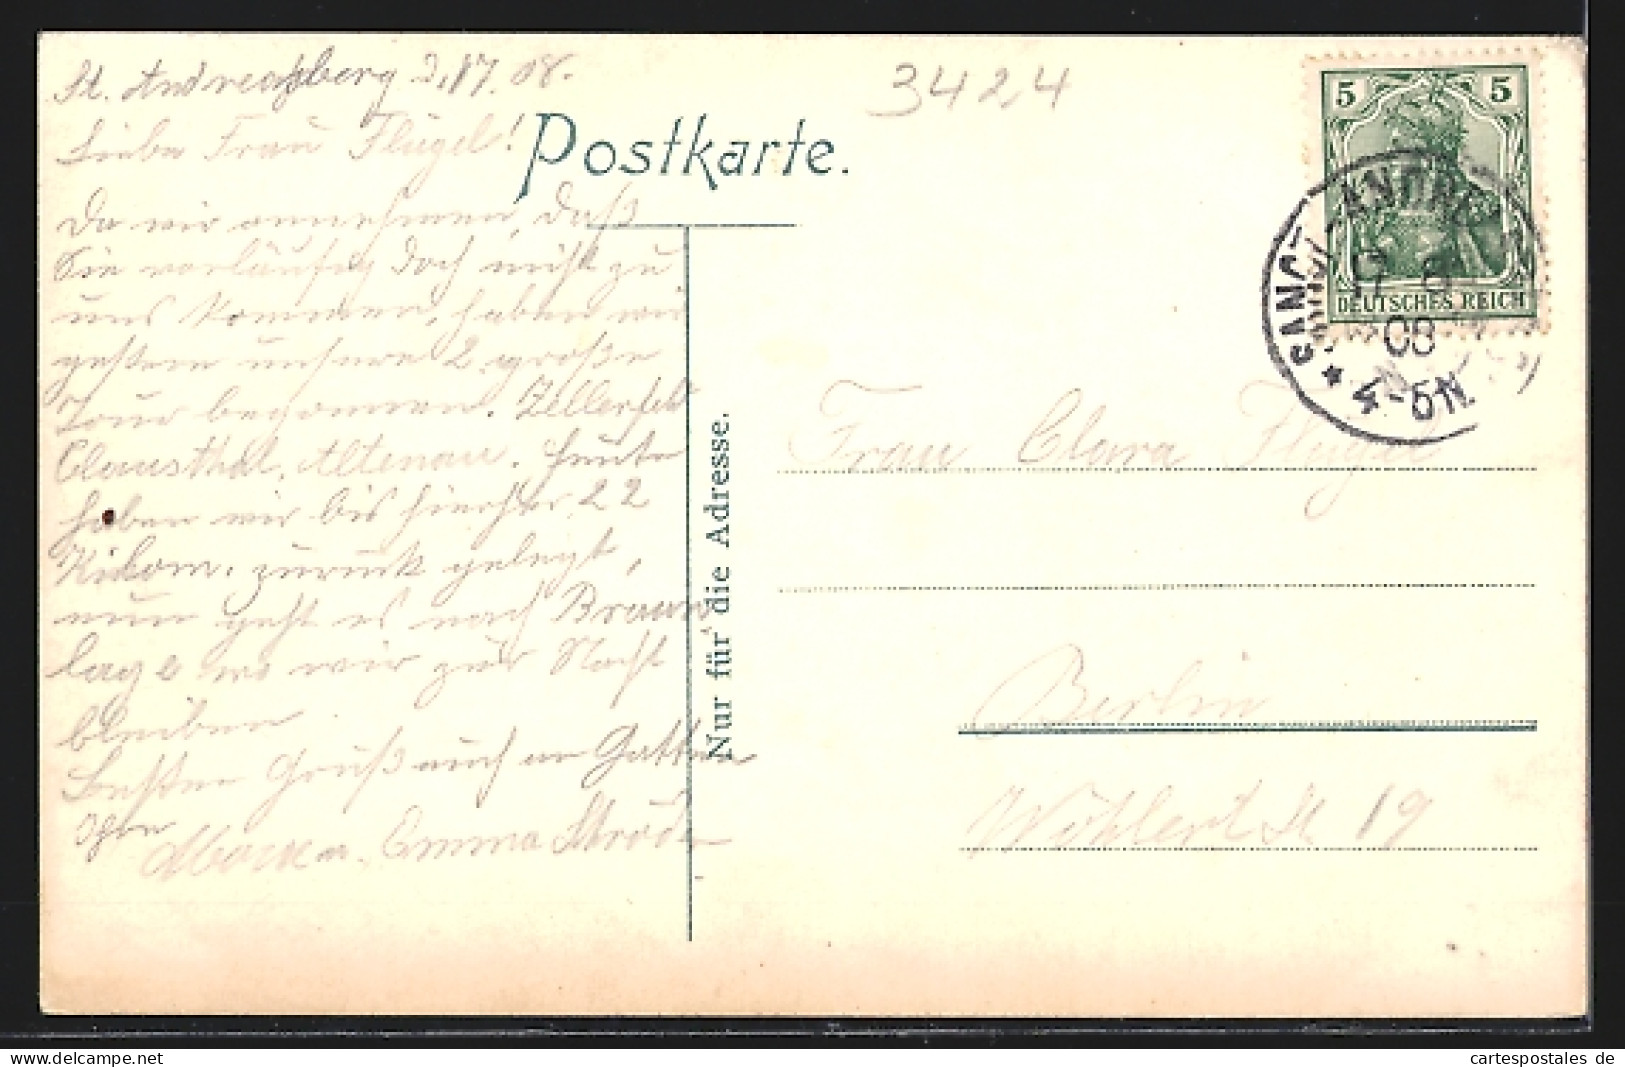 St. Andreasberg 
Liebe Frau Flügel!
Da wir annehmen, daß
Sie vorläufig doch nicht zu
uns kommen, haben wir
gestern unsere 2. große
Tour begonnen. Zellerfeld
Clausthal, Altenau. Heute
haben wir bis hierher 22
Kilom. zurück gelegt,
nun geht es nach Braun
lage wo wir zur Nacht
bleiben
Besten Gruß auch an Gatten
Ihre
Emma Schröder
Postkarte.
3424
5 5
DEUTSCHES REICH
SANCT ANDR
08
* 4-5N.
Nur für die Adresse.
Frau Clara Flügel
Berlin
Wöhlert St 19
cartespostales de